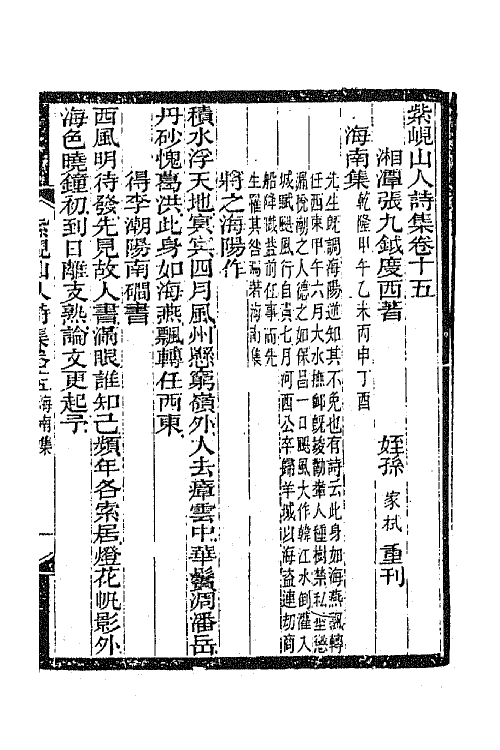 紫峴山人詩集卷十五
湘潭張九鉞度西著　姪孫家栻重刊
海南集 乾隆甲午乙未丙申丁酉
先生旣調海陽逆知其不免也有詩云此身如海燕飄轉
任西東甲午六月大水撫䘏旣竣勸羣人種樹禁私
漏稅潮之人德之如保昌一日颶風大作韓江水倒灌入
城賦颶風行自責七月河西公卒歸羊城以海盜連刧商
船碎職盖前任事而先
生罹其咎焉著海南集
將之海陽作
積水浮天地寅賓四月風州懸窮嶺外人去瘴雲中華鬢凋潘岳
丹砂愧葛洪此身如海燕飄轉任西東
得李潮陽南磵書
西風明待發先見故人書滿眼誰知己頻年各索居燈花帆影外
海色曉鐘初到日離支熟論文更起予
紫峴山人詩集卷十五 海南集 一